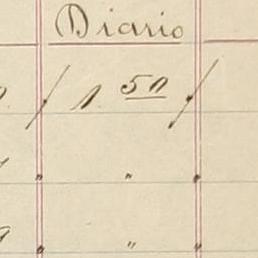 Diario
1 50
"
"